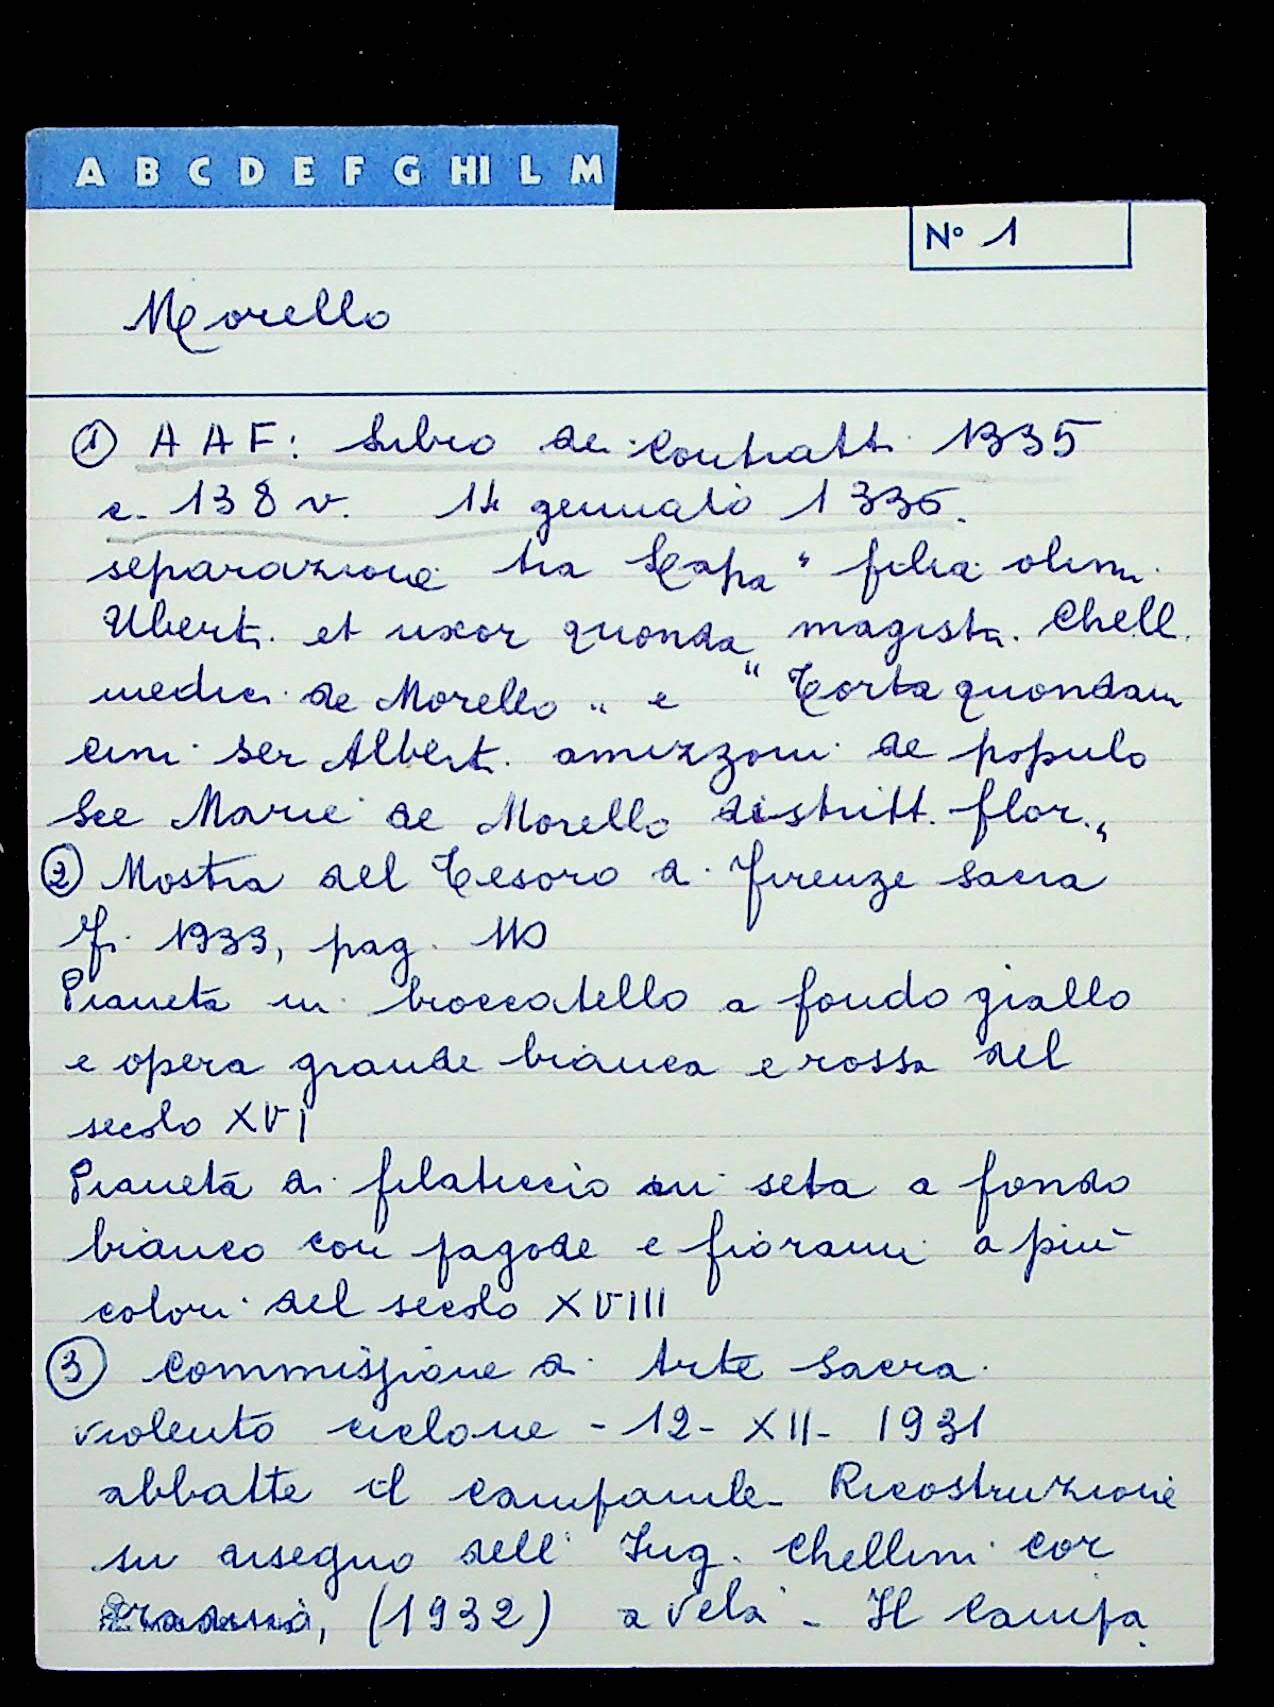 A B C D E F G HI L M
N° 1
Morello
① A A F: Libro dei Contratti 1335
c. 138 v. 14 gennaio 1336.
separazione tra Lapa " filia olim
Uberti et uxor quonda magistri Chelli
medici de Morello " e " Torta quondam
cini ser Alberti amizzoni de populo
Sce Marie de Morello distritt. flor. "
② Mostra del Tesoro di Firenze Sacra
Fi. 1933, pag. 110
Pianeta in broccatello a fondo giallo
e opera grande bianca e rossa del
secolo XVI
Pianeta di filaticcio in seta a fondo
bianco con pagode e fiorami a più
colori del secolo XVIII
③ Commissione di Arte Sacra
violento ciclone - 12 - XII - 1931
abbatte il campanile - Ricostruzione
su disegno dell' Ing. Chellini Cor
(1932) a vela - Il Campa